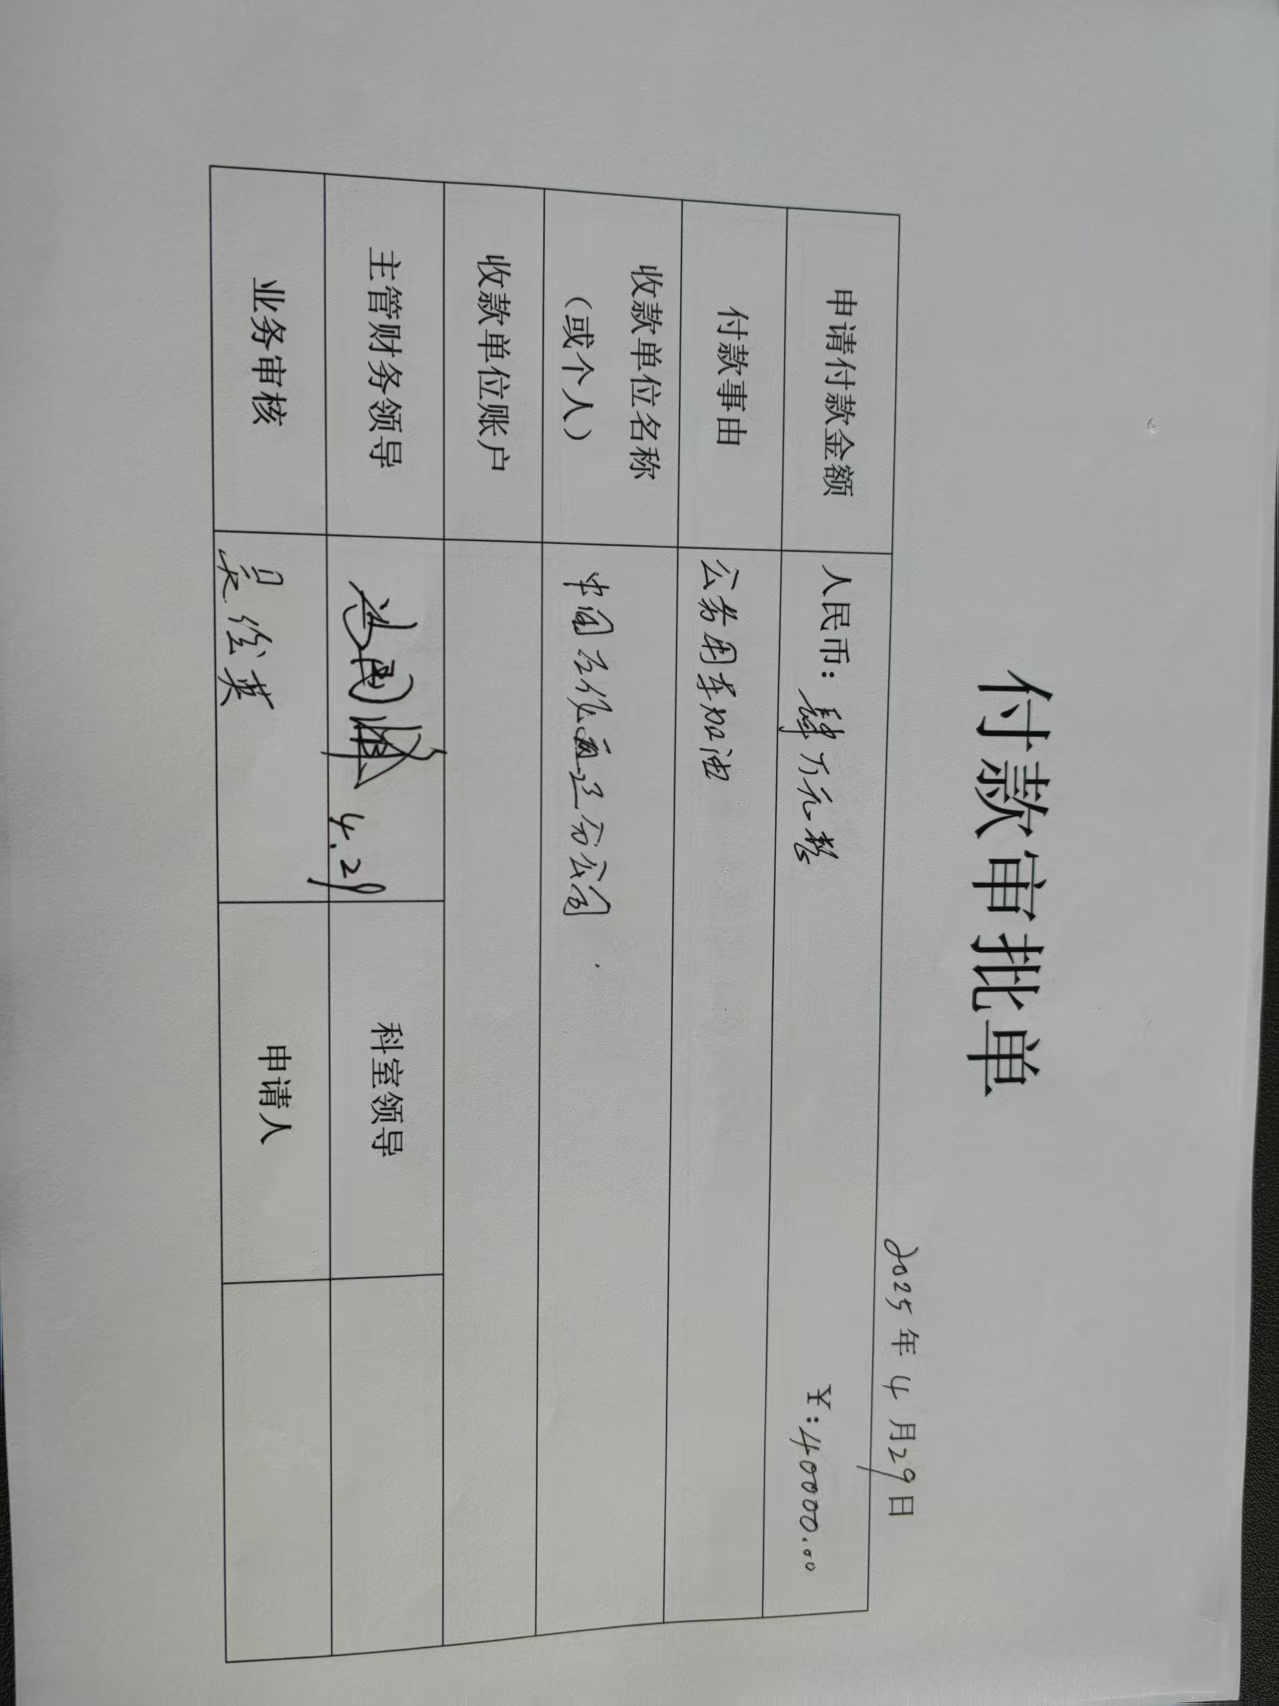 付款审批单
2025年4月29日
申请付款金额 人民币：肆万元整 ￥:40000.00
付款事由 公务用车加油
收款单位名称（或个人） 中国石化 分公司
收款单位账户
主管财务领导 4.29 科室领导
业务审核 吴 英 申请人